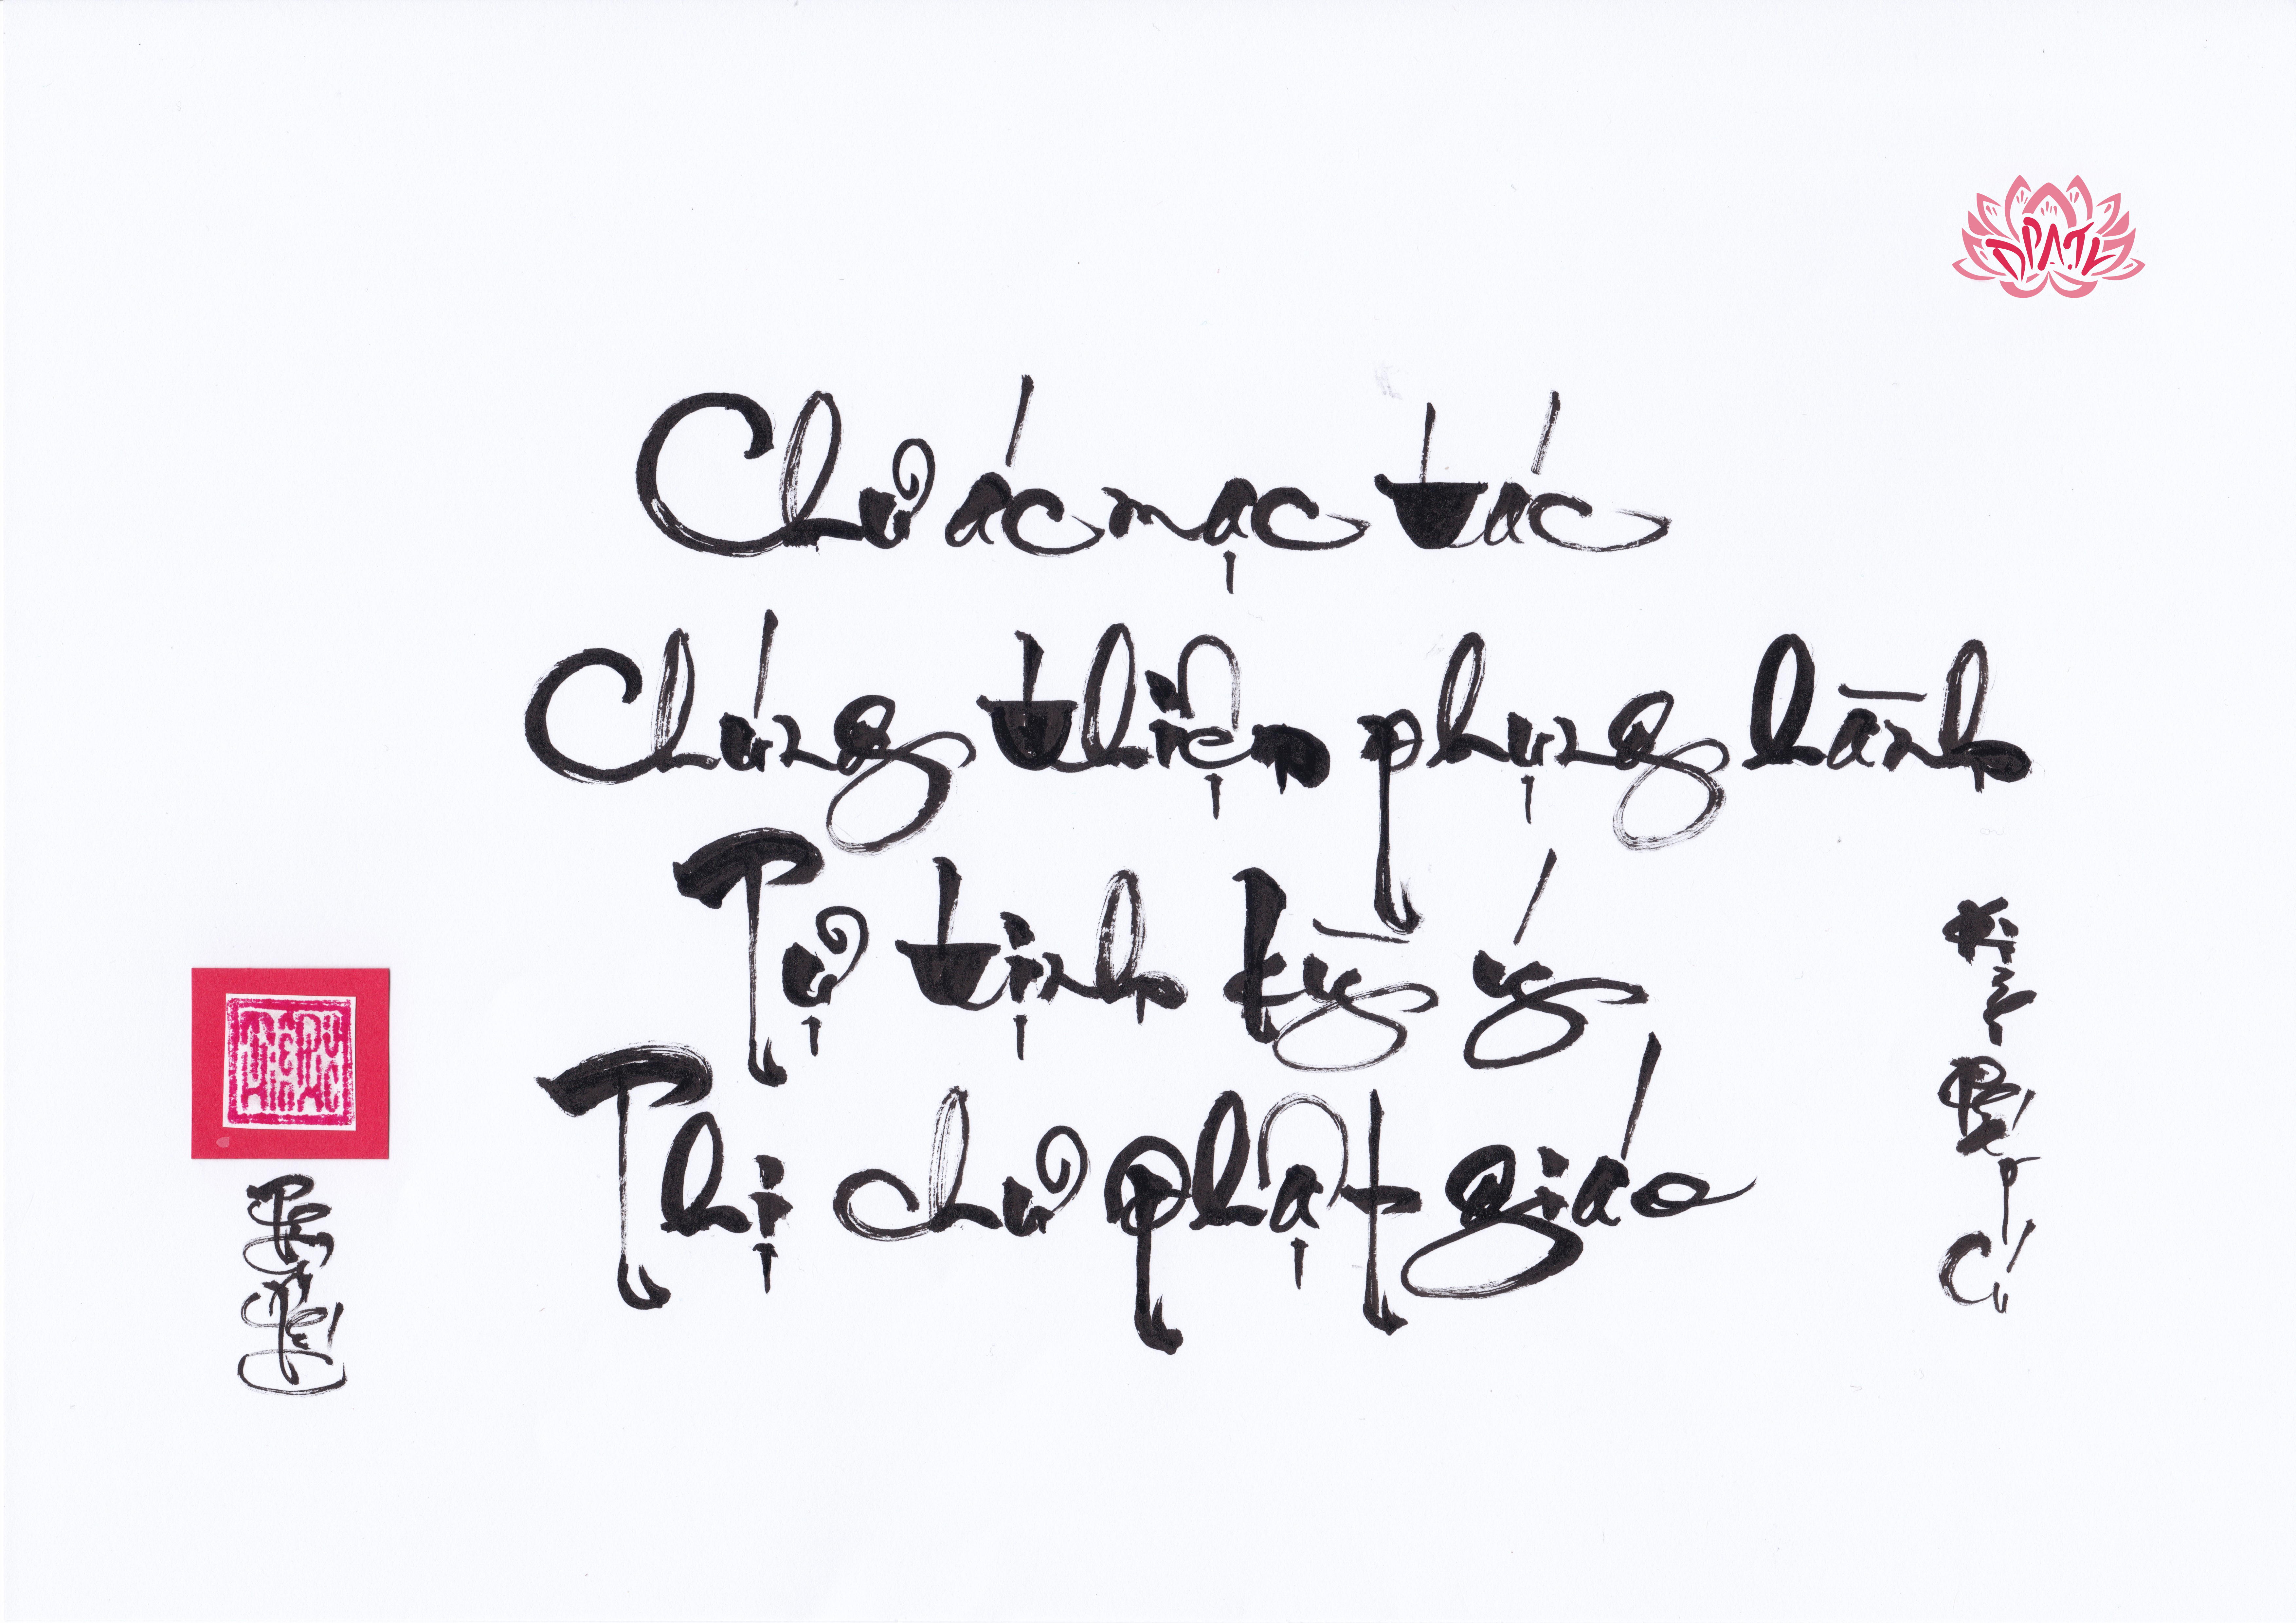 DPATL
Chư ác mạc tác
Chúng thiện phụng hành
Tự tịnh kỳ ý
Thị chư phật giáo
Kinh
Pháp
Cú